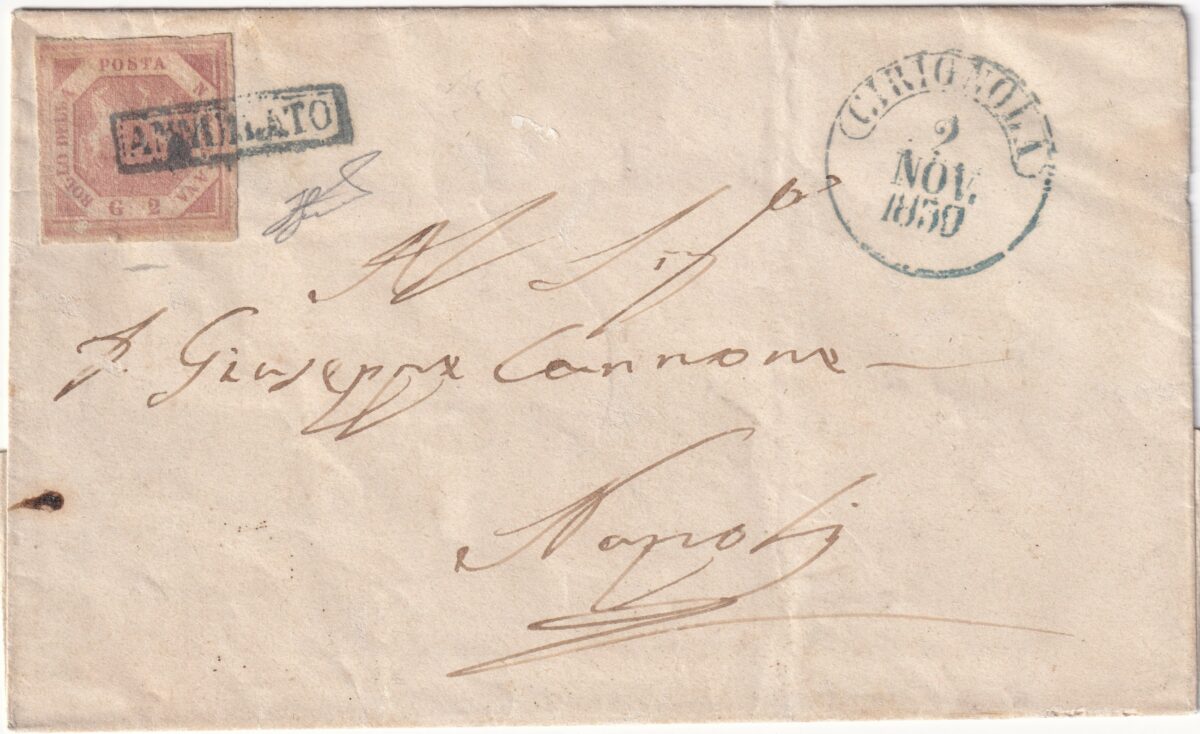 BOLLO DELLA
POSTA
G 2
ANNULLATO
CIRIGNOLA
2
NOV.
1859
Al Sigr
D. Giuseppe Cannone
Napoli